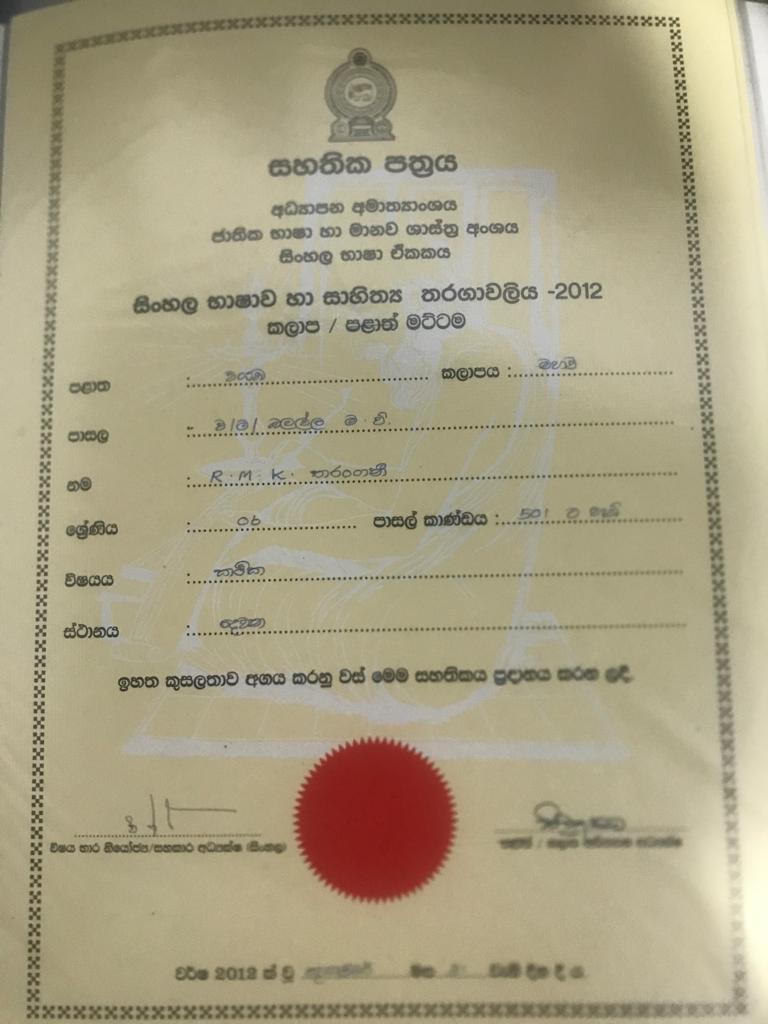 සහතික පත්‍රය
අධ්‍යාපන අමාත්‍යාංශය
ජාතික භාෂා හා මානව ශාස්ත්‍ර අංශය
සිංහල භාෂා ඒකකය
සිංහල භාෂාව හා සාහිත්‍ය තරගාවලිය -2012
කලාප / පළාත් මට්ටම
පළාත : වයඹ කලාපය :
පාසල : ම. වි.
නම : R. M. K. තරංගනී
ශ්‍රේණිය : 06 පාසල් කාණ්ඩය : 501 ට වැඩි
විෂයය :
ස්ථානය : දෙවන
ඉහත කුසලතාව අගය කරනු වස් මෙම සහතිකය ප්‍රදානය කරන ලදී.
විෂය භාර නියෝජ්‍ය/සහකාර අධ්‍යක්ෂ (සිංහල)
වර්ෂ 2012 ක් වූ මස වැනි දින දී ය.